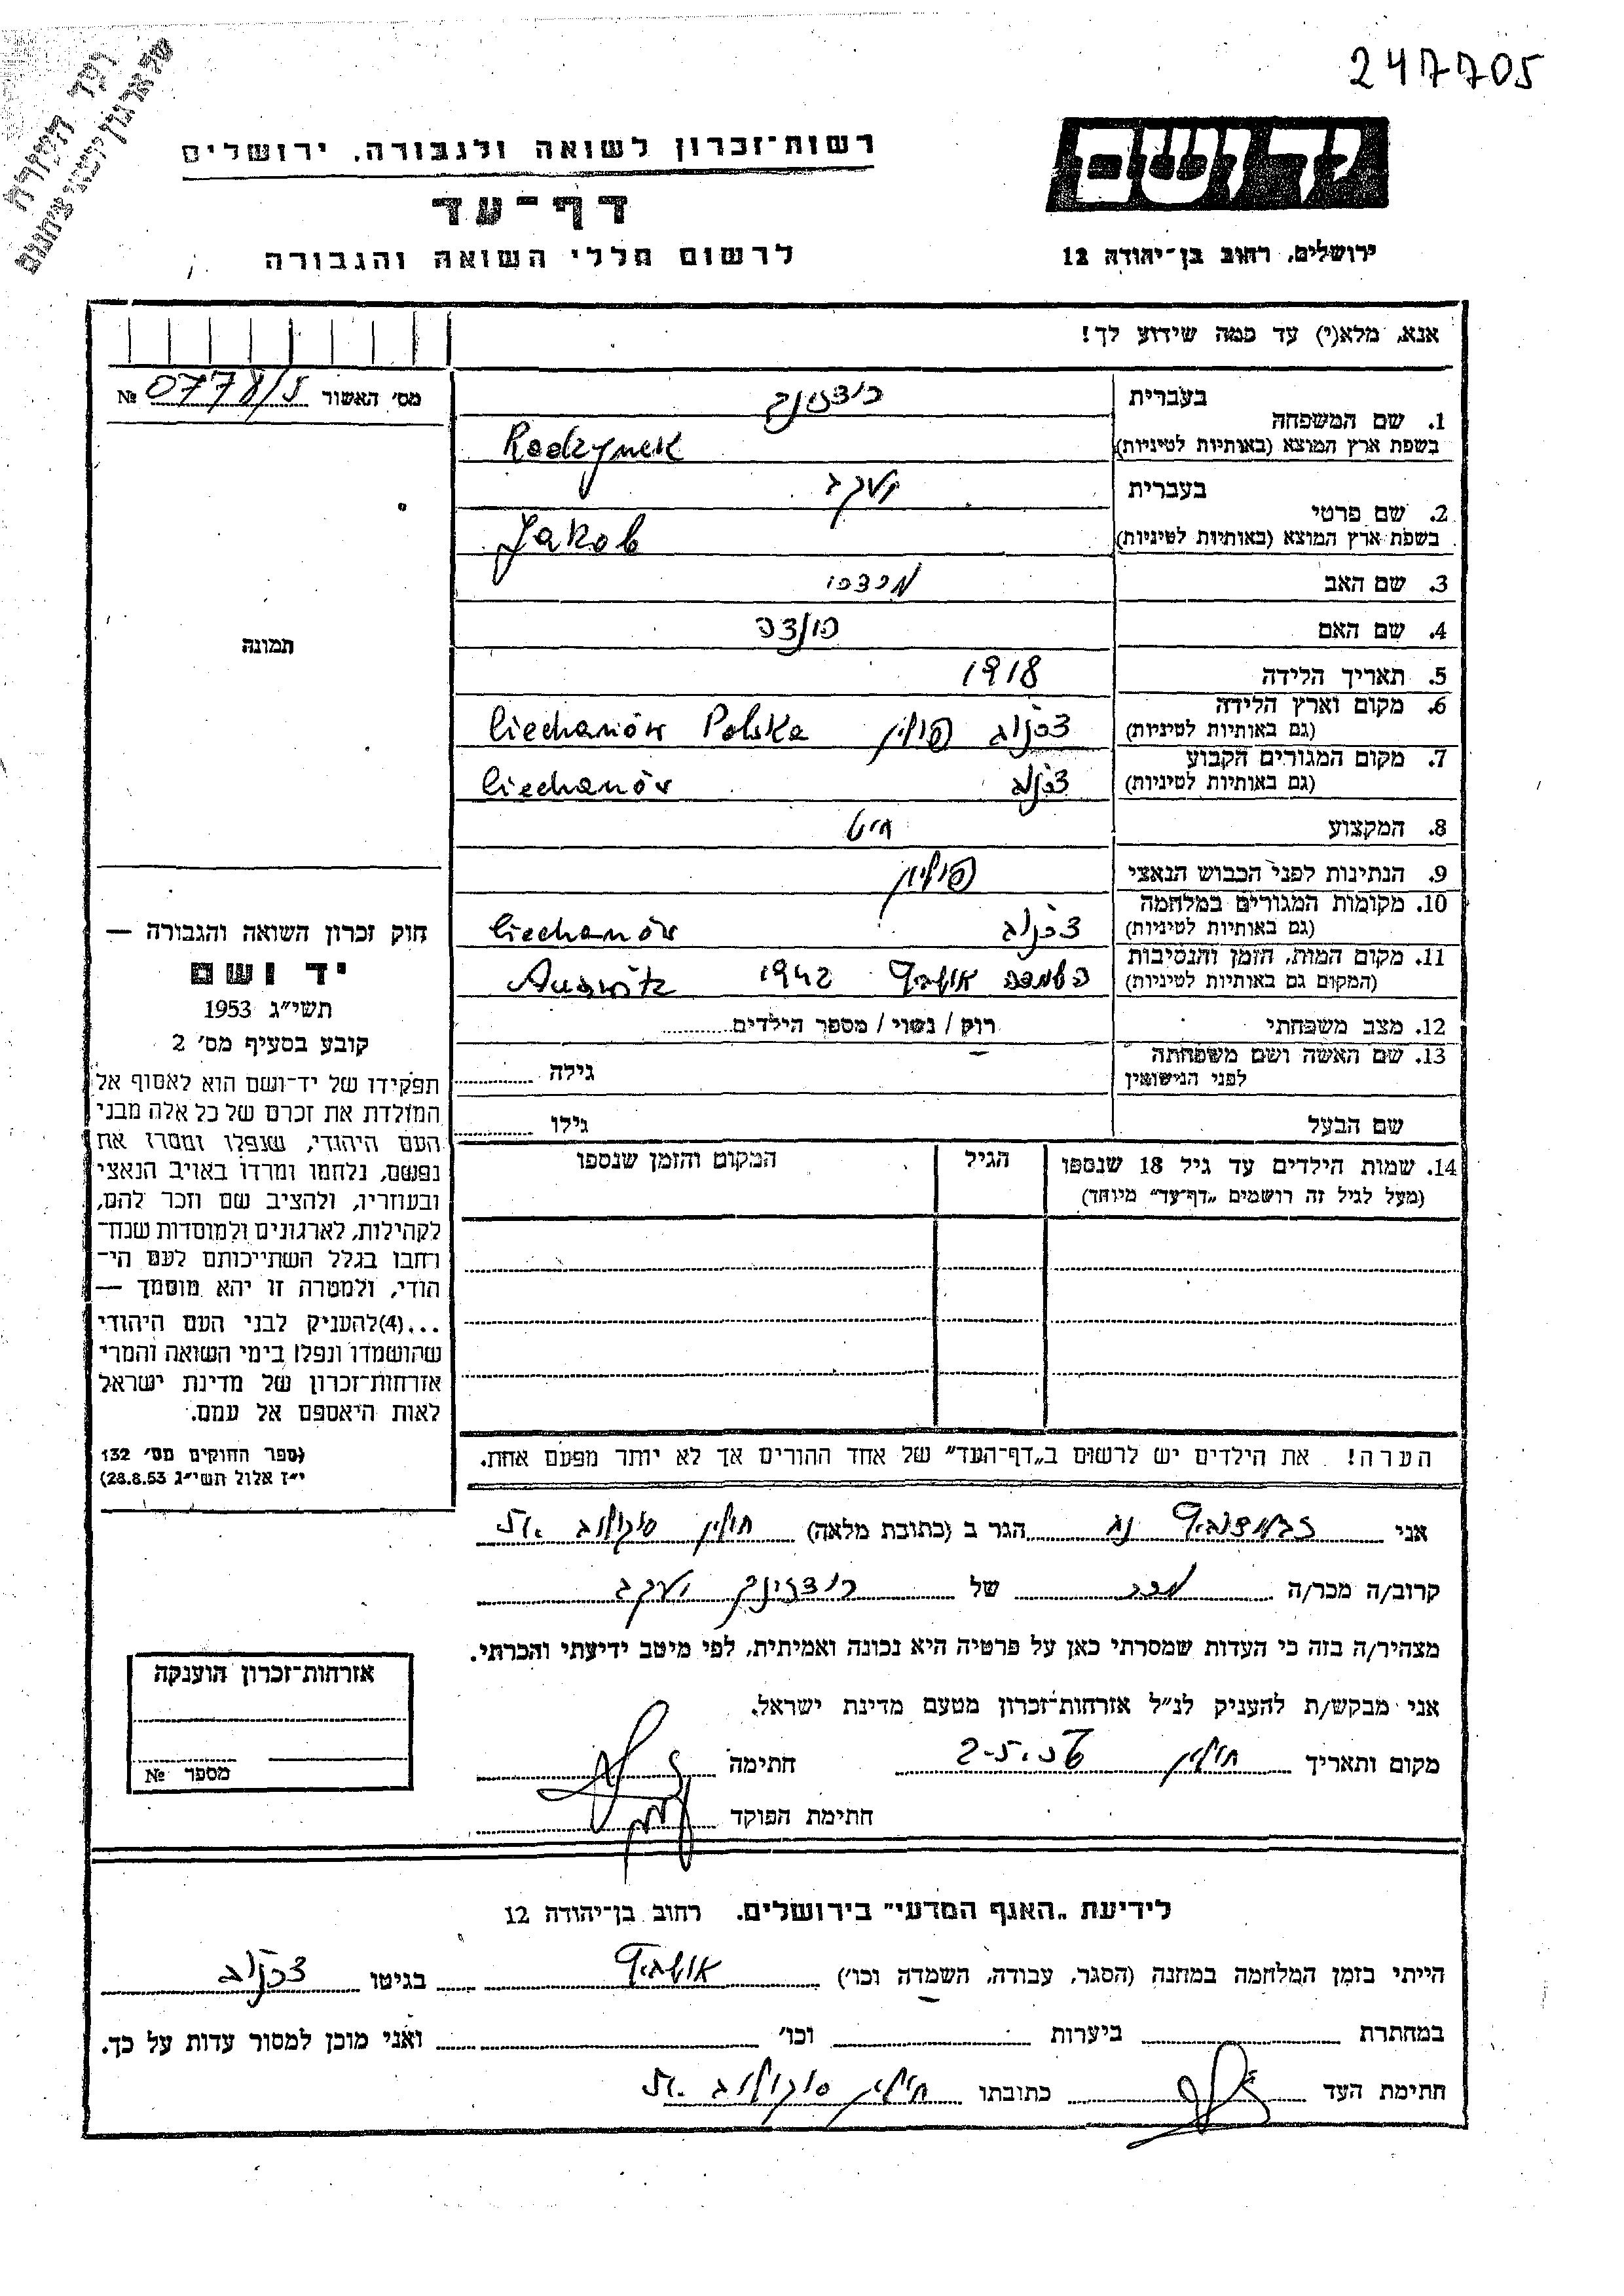 247705
ועד הפזורה
של ארגון יוצאי ציחנוב
רשות-זכרון לשואה ולגבורה, ירושלים
יד ושם
דף-עד
לרשום חללי השואה והגבורה
ירושלים, רחוב בן-יהודה 12
אנא, מלא(י) עד כמה שידוע לך!
מס' האשור № 0778/5
1. שם המשפחה
בעברית רודזינק
בשפת ארץ המוצא (באותיות לטיניות) Rodzynek
2. שם פרטי
בעברית יעקב
בשפת ארץ המוצא (באותיות לטיניות) Jakob
3. שם האב מרדכי
4. שם האם
תמונה
5. תאריך הלידה 1918
6. מקום וארץ הלידה
(גם באותיות לטיניות) צכנוב פולין Ciechanów Polska
7. מקום המגורים הקבוע
(גם באותיות לטיניות) צכנוב Ciechanów
8. המקצוע חיט
9. הנתינות לפני הכבוש הנאצי פולין
10. מקומות המגורים במלחמה
(גם באותיות לטיניות) צכנוב Ciechanów
11. מקום המות, הזמן והנסיבות
(המקום גם באותיות לטיניות) השמדה אושביץ 1942 Auswitz
12. מצב משפחתי רוק / נשוי / מספר הילדים
13. שם האשה ושם משפחתה
לפני הנישואין גילה
שם הבעל גילו
14. שמות הילדים עד גיל 18 שנספו הגיל המקום והזמן שנספו
(מעל לגיל זה רושמים „דף-עד" מיוחד)
חוק זכרון השואה והגבורה —
יד ושם
תשי"ג 1953
קובע בסעיף מס' 2
תפקידו של יד-ושם הוא לאסוף אל
המולדת את זכרם של כל אלה מבני
העם היהודי, שנפלו ומסרו את
נפשם, נלחמו ומרדו באויב הנאצי
ובעוזריו, ולהציב שם וזכר להם,
לקהילות, לארגונים ולמוסדות שנח-
רחבו בגלל השתייכותם לעם הי-
הודי, ולמטרה זו יהא מוסמך —
...(4) להעניק לבני העם היהודי
שהושמדו ונפלו בימי השואה והמרי
אזרחות-זכרון של מדינת ישראל
לאות היאספם אל עמם.
(ספר החוקים מס' 132
י"ז אלול תשי"ג 28.8.53)
הערה! את הילדים יש לרשום ב„דף-העד" של אחד ההורים אך לא יותר מפעם אחת.
אני הגר ב (כתובת מלאה) חולון סוקולוב
קרוב/ה מכר/ה מכר של רודזינק יעקב
מצהיר/ה בזה כי העדות שמסרתי כאן על פרטיה היא נכונה ואמיתית, לפי מיטב ידיעתי והכרתי.
אני מבקש/ת להעניק לנ"ל אזרחות-זכרון מטעם מדינת ישראל.
מקום ותאריך חולון חתימה
חתימת הפוקד
אזרחות-זכרון הוענקה
מספר №
לידיעת „האגף המדעי" בירושלים. רחוב בן-יהודה 12
הייתי בזמן המלחמה במחנה (הסגר, עבודה, השמדה וכו') אושביץ בגיטו צכנוב
במחתרת ביערות וכו' ואני מוכן למסור עדות על כך.
חתימת העד כתובתו חולון סוקולוב